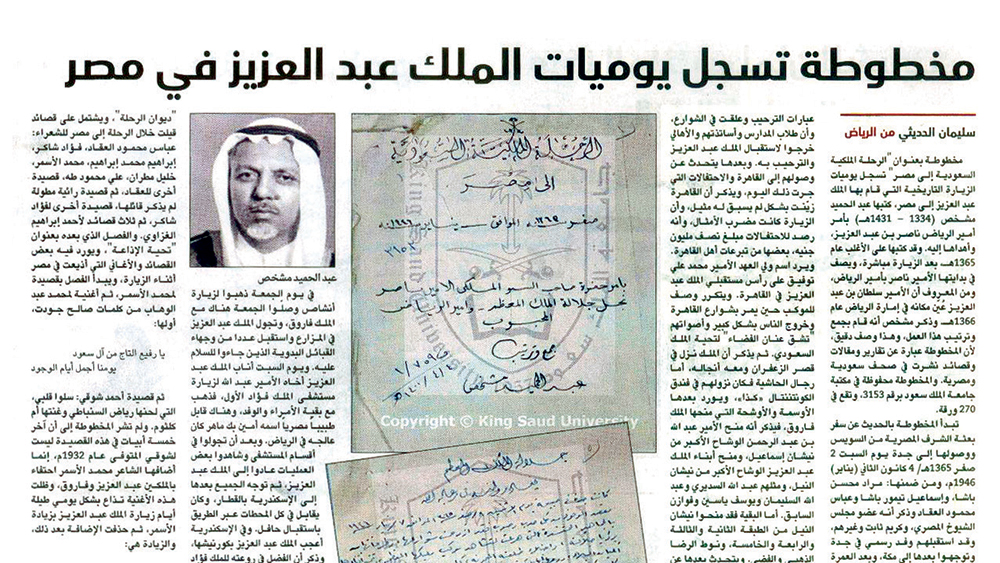 مخطوطة تسجل يوميات الملك عبد العزيز في مصر
سليمان الحديثي من الرياض
مخطوطة بعنوان "الرحلة الملكية
السعودية إلى مصر" تسجل يوميات
الزيارة التاريخية التي قام بها الملك
عبد العزيز إلى مصر، كتبها عبد الحميد
مشخص (1334 – 1431هـ) بأمر
أمير الرياض ناصر بن عبد العزيز،
وأهداها إليه. وقد كتبها على الأغلب عام
1365هـ بعد الزيارة مباشرة، ويصف
في بدايتها الأمير ناصر بأمير الرياض،
ومن المعروف أن الأمير سلطان بن عبد
العزيز عيّن مكانه في إمارة الرياض عام
1366هـ. وذكر مشخص أنه قام بجمع
وترتيب هذا العمل، وهذا وصف دقيق،
لأن المخطوطة عبارة عن تقارير ومقالات
وقصائد نشرت في صحف سعودية
ومصرية. والمخطوطة محفوظة في مكتبة
جامعة الملك سعود برقم 3153، وتقع في
270 ورقة.
تبدأ المخطوطة بالحديث عن سفر
بعثة الشرف المصرية من السويس
ووصولها إلى جدة يوم السبت 2
صفر 1365هـ/ 4 كانون الثاني (يناير)
1946م، و من ضمنها: مراد محسن
باشا، وإسماعيل تيمور باشا وعباس
محمود العقاد وذكر أنه عضو مجلس
الشيوخ المصري، وكريم ثابت وغيرهم،
وقد استقبلهم وفد رسمي في جدة
وتوجهوا بعدها إلى مكة، وبعد العمرة
عبارات الترحيب وعلقت في الشوارع،
وأن طلاب المدارس وأساتذتهم والأهالي
خرجوا لاستقبال الملك عبد العزيز
والترحيب به. وبعدها يتحدث عن
وصولهم إلى القاهرة والاحتفالات التي
جرت ذلك اليوم، ويذكر أن القاهرة
زيّنت بشكل لم يسبق له مثيل، وأن
الزيارة كانت مضرب الأمثال، وأنه
رصد للاحتفالات مبلغ نصف مليون
جنيه، بعضها من تبرعات أهل القاهرة.
ويرد اسم ولي العهد الأمير محمد علي
توفيق على رأس مستقبلي الملك عبد
العزيز في القاهرة. ويتكرر وصف
للموكب حين يمر بشوارع القاهرة
وخروج الناس بشكل كبير وأصواتهم
"تشق عنان الفضاء" لتحية الملك
السعودي. ثم يذكر أن الملك نزل في
قصر الزعفران ومعه أنجاله، أما
رجال الحاشية فكان نزولهم في فندق
الكونتننتال «كذا»، ويورد بعدها
الأوسمة والأوشحة التي منحها الملك
فاروق، فيذكر أنه منح الأمير عبد الله
بن عبد الرحمن الوشاح الأكبر من
نيشان إسماعيل، ومنح أبناء الملك
عبد العزيز الوشاح الأكبر من نيشان
النيل، ومثلهم عبد الله السديري وعبد
الله السليمان ويوسف ياسين وفوزان
السابق. أما البقية فقد منحوا نيشان
النيل من الطبقة الثانية والثالثة
والرابعة والخامسة، ونوط الرضا
الذهبي والفضي. ويتحدث بعدها عن
الرحلة الملكية السعودية
إلى مصر
صفر ١٣٦٥ الموافق يناير ١٩٤٦
٣١٥٣
بأمر حضرة صاحب السمو الملكي الأمير ناصر
نجل جلالة الملك المعظم وأمير الرياض
المحبوب
جمع وترتيب
عبد الحميد مشخص
Copyright © King Saud University
عبد الحميد مشخص
في يوم الجمعة ذهبوا لزيارة
أنشاص وصلوا الجمعة هناك مع
الملك فاروق، وتجول الملك عبد العزيز
في المزارع واستقبل عددا من وجهاء
القبائل البدوية الذين جاءوا للسلام
عليه. ويوم السبت أناب الملك عبد
العزيز أخاه الأمير عبد الله لزيارة
مستشفى الملك فؤاد الأول، فذهب
مع بقية الأمراء والوفد، وهناك قابل
طبيبا مصريا اسمه أمين بك ماهر كان
عالجه في الرياض، وبعد أن تجولوا في
أقسام المستشفى وشاهدوا بعض
العمليات عادوا إلى الملك عبد
العزيز. ثم توجه الجميع بعدها
إلى الإسكندرية بالقطار، وكان
يقابل في كل المحطات عبر الطريق
باستقبال حافل. وفي الإسكندرية
أعجب الملك عبد العزيز بكورنيشها،
وذكر أن الفضل في روعته للملك فؤاد
"ديوان الرحلة"، ويشتمل على قصائد
قيلت خلال الرحلة إلى مصر للشعراء:
عباس محمود العقاد، فؤاد شاكر،
إبراهيم محمد إبراهيم، محمد الأسمر،
خليل مطران، علي محمود طه، قصيدة
أخرى للعقاد، ثم قصيدة رائية مطولة
لم يذكر قائلها، قصيدة أخرى لفؤاد
شاكر، ثم ثلاث قصائد لأحمد إبراهيم
الغزاوي. والفصل الذي بعده بعنوان
"تحية الإذاعة"، ويورد فيه بعض
القصائد والأغاني التي أذيعت في مصر
أثناء الزيارة، ويبدأ الفصل بقصيدة
لمحمد الأسمر، ثم أغنية لمحمد عبد
الوهاب من كلمات صالح جودت،
أولها:
يا رفيع التاج من آل سعود
يومنا أجمل أيام الوجود
ثم قصيدة أحمد شوقي: سلوا قلبي،
التي لحنها رياض السنباطي وغنتها أم
كلثوم. ولم تشر المخطوطة إلى أن آخر
خمسة أبيات في هذه القصيدة ليست
لشوقي المتوفى عام 1932م، إنما
أضافها الشاعر محمد الأسمر احتفاء
بالملكين عبد العزيز وفاروق، وظلت
هذه الأغنية تذاع بشكل يومي طيلة
أيام زيارة الملك عبد العزيز بزيادة
الأسمر، ثم حذفت الإضافة بعد ذلك،
والزيادة هي: